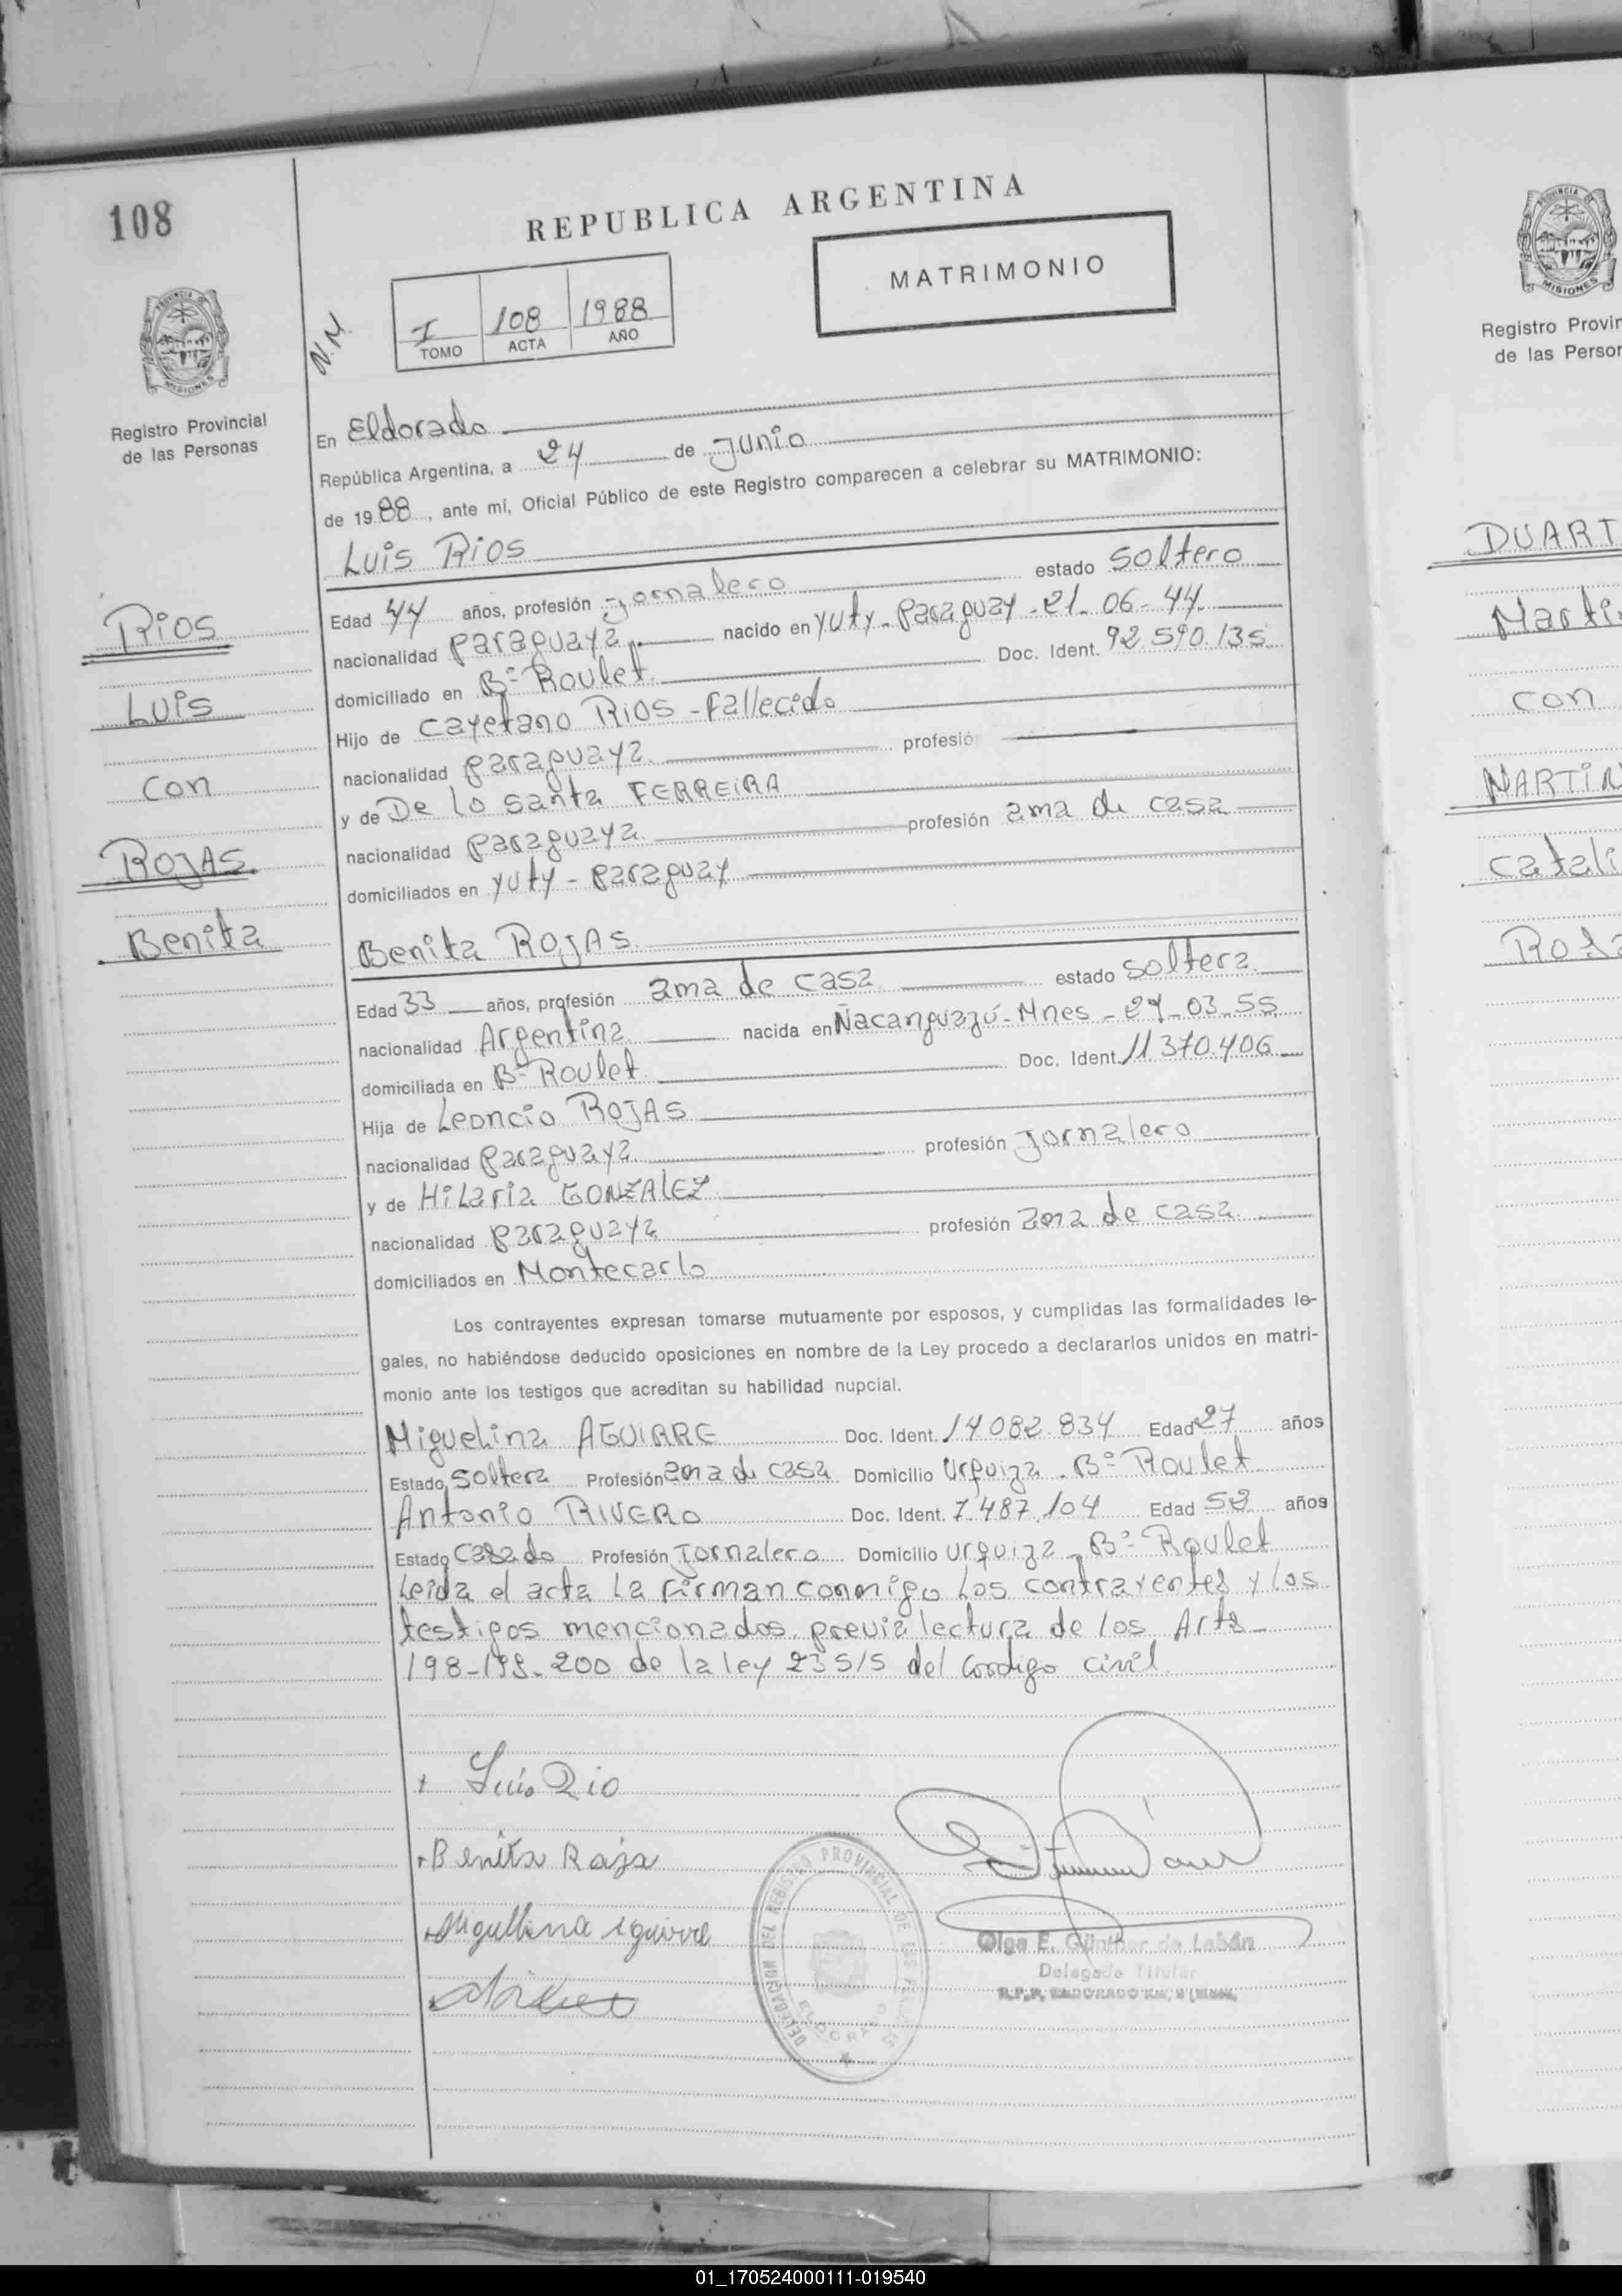 108
REPUBLICA ARGENTINA
MATRIMONIO
N.M.
I 108 1988
TOMO ACTA AÑO
PROVINCIA DE
MISIONES
Registro Provincial
de las Personas
En Eldorado
República Argentina, a 24 de Junio
de 1988, ante mí, Oficial Público de este Registro comparecen a celebrar su MATRIMONIO:
Luis Rios
Edad 44 años, profesión Jornalero estado soltero
nacionalidad paraguaya nacido en Yuty - Paraguay - 21-06-44
domiciliado en Bº Roulet Doc. Ident. 92.590.135
Hijo de Cayetano RIOS - Fallecido
nacionalidad paraguaya profesión
y de De Lo Santa FERREIRA
nacionalidad paraguaya profesión ama de casa
domiciliados en Yuty - Paraguay
Benita ROJAS
Edad 33 años, profesión ama de casa estado soltera
nacionalidad Argentina nacida en Ñacanguazú - Mnes - 27-03-55
domiciliada en Bº Roulet Doc. Ident. 11.370.406
Hija de Leoncio ROJAS
nacionalidad paraguaya profesión Jornalero
y de Hilaria GONZALEZ
nacionalidad paraguaya profesión ama de casa
domiciliados en Montecarlo
Los contrayentes expresan tomarse mutuamente por esposos, y cumplidas las formalidades le-
gales, no habiéndose deducido oposiciones en nombre de la Ley procedo a declararlos unidos en matri-
monio ante los testigos que acreditan su habilidad nupcial.
Miguelina AGUIRRE Doc. Ident. 14.082.834 Edad 27 años
Estado soltera Profesión ama de casa Domicilio Urquiza - Bº Roulet
Antonio RIVERO Doc. Ident. 7.487.104 Edad 52 años
Estado Casado Profesión Jornalero Domicilio Urquiza - Bº Roulet
Leida el acta la firman conmigo los contrayentes y los
testigos mencionados, previa lectura de los Arts
198-199-200 de la ley 23515 del Condigo civil
Luis Rio
Benita Roja
Miguelina Aguirre
DELEGACION DEL REGISTRO PROVINCIAL DE LAS PERSONAS
ELDORADO
Olga E. Günther de Labán
Delegado Titular
R.P.P. ELDORADO KM. 9 (MNES.
RIOS
Luis
con
ROJAS
Benita
PROVINCIA DE
MISIONES
Registro Provin
de las Person
DUART
Marti
con
MARTIN
Catali
Rosa
01_170524000111-019540